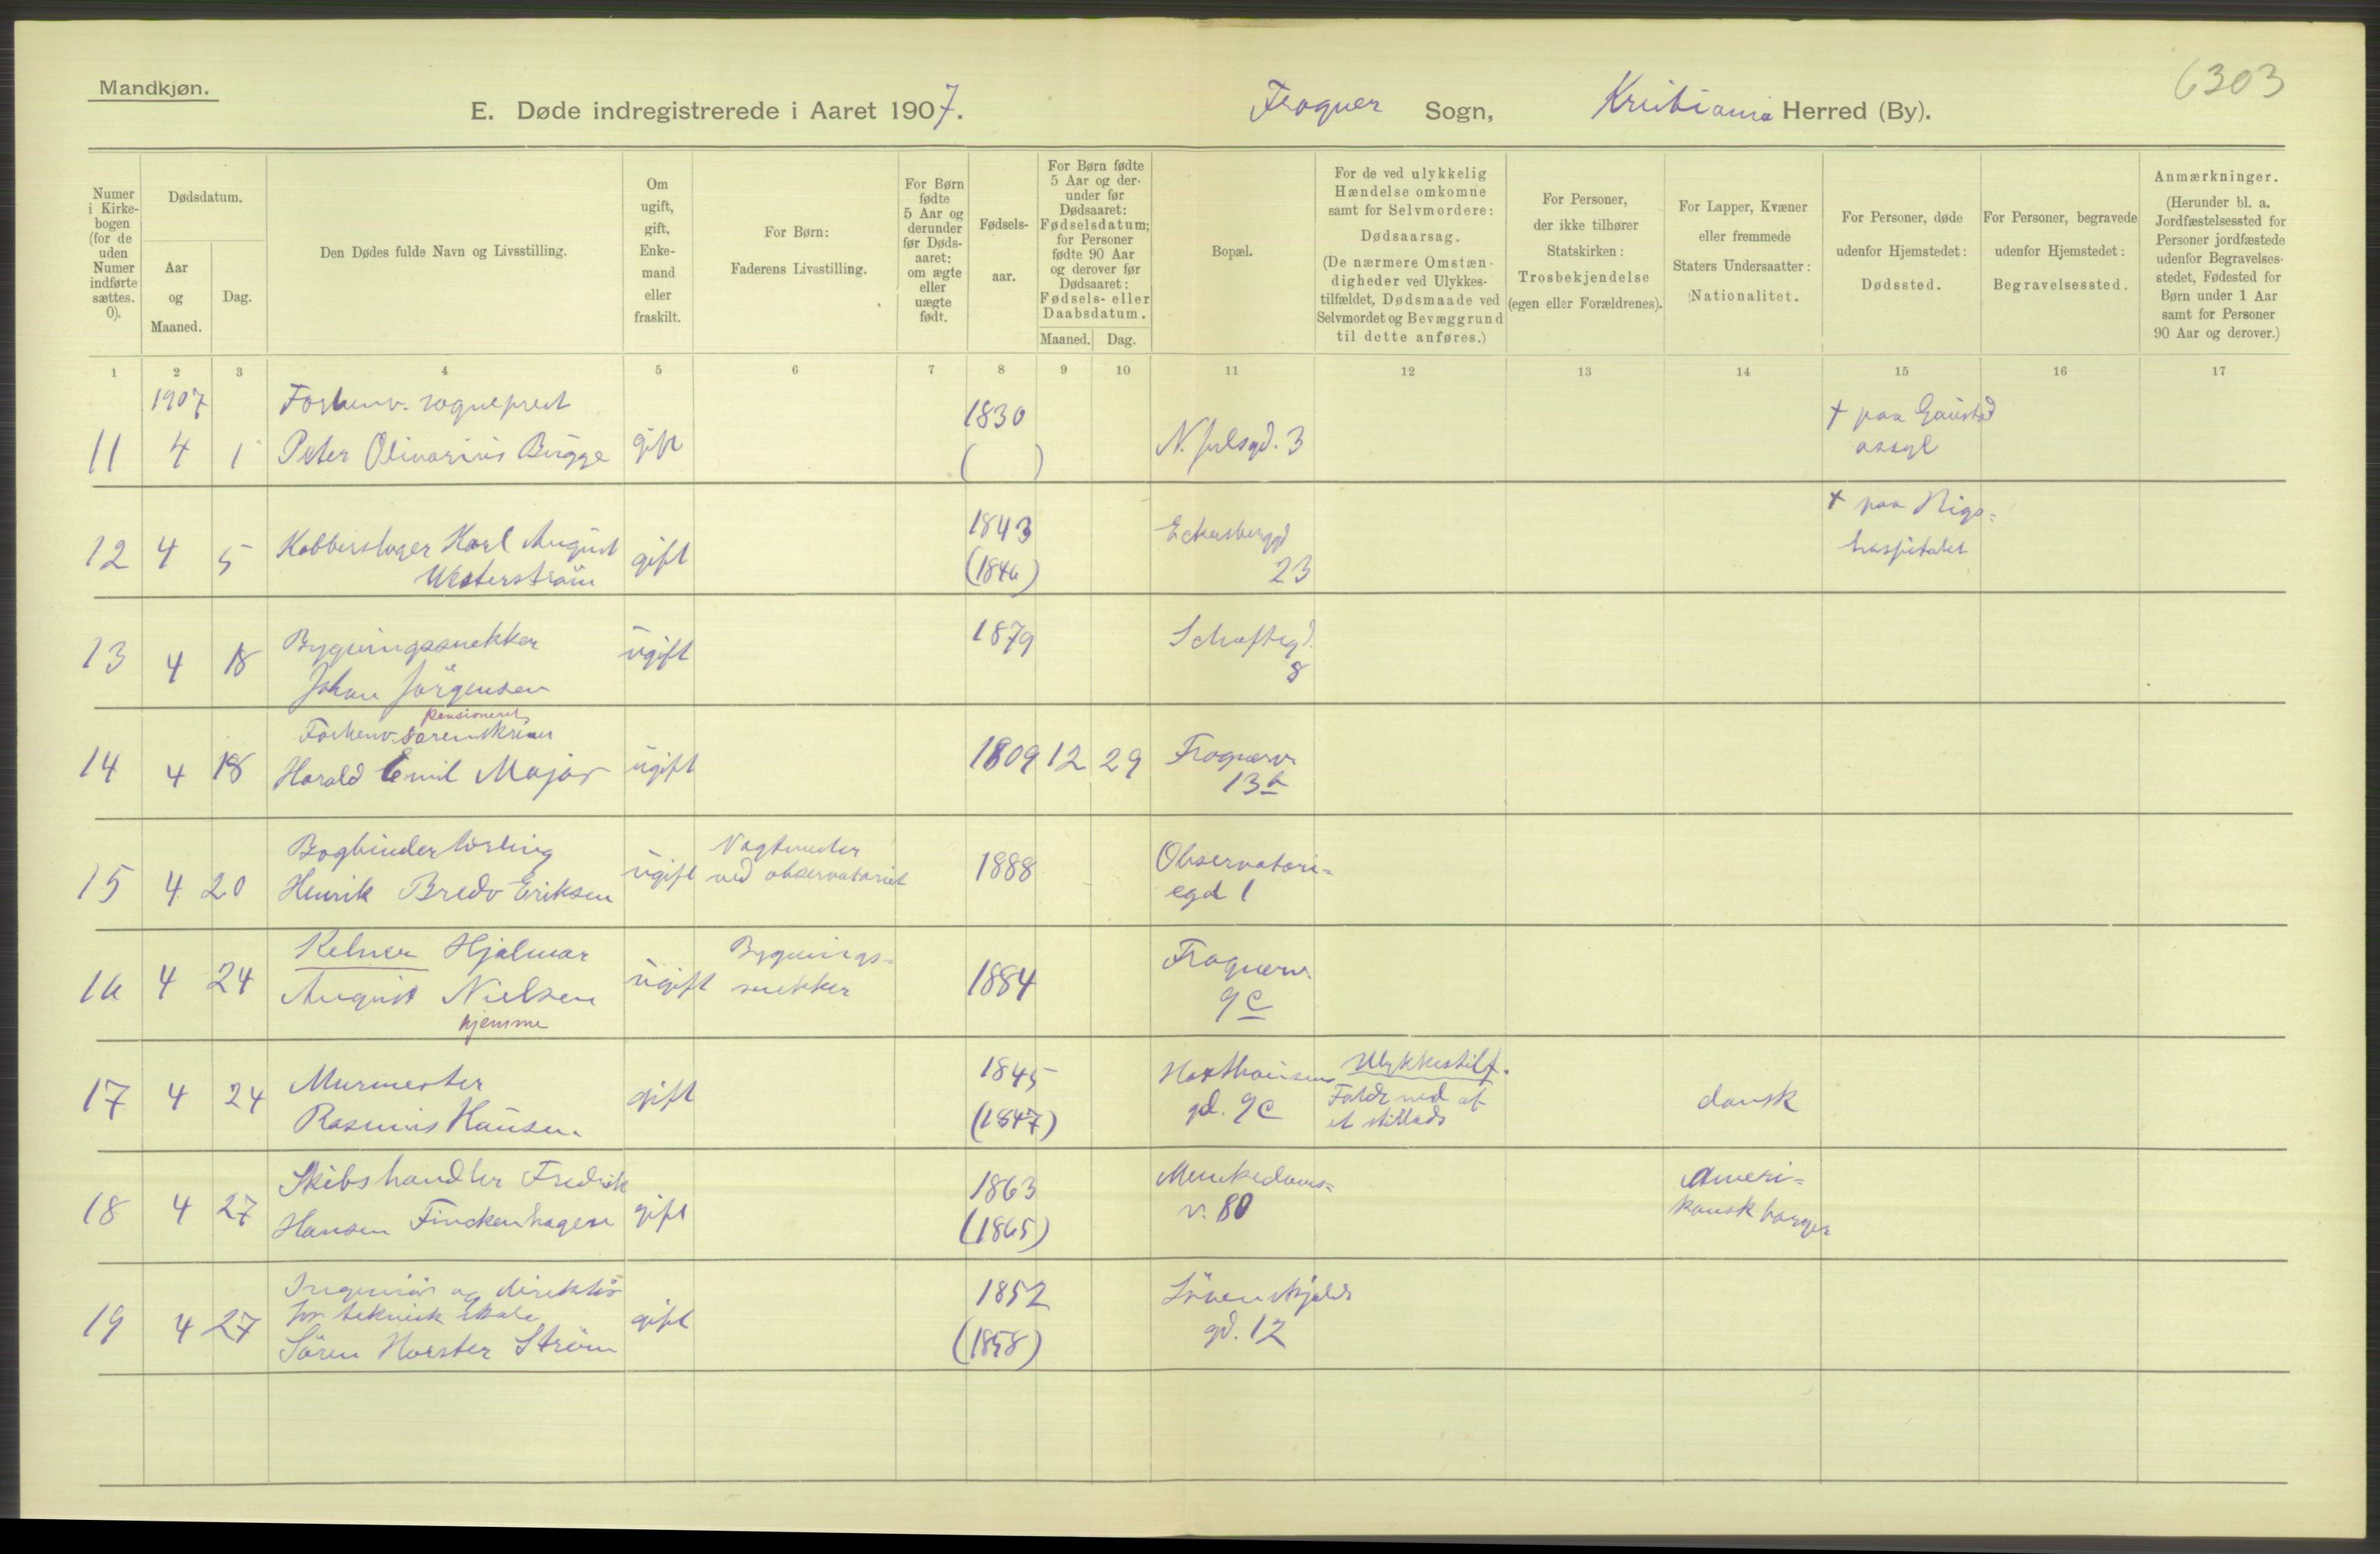 Mandkjøn.
6303
E. Døde indregistrerede i Aaret 1907. Frogner Sogn, Kristiania Herred (By).
Numer i Kirke-bogen (for de uden Numer indførte sættes. 0).
Dødsdatum.
Aar og Maaned.
Dag.
Den Dødes fulde Navn og Livsstilling.
Om ugift, gift, Enke-mand eller fraskilt.
For Børn: Faderens Livsstilling.
For Børn fødte 5 Aar og derunder før Døds-aaret: om ægte eller uægte født.
Fødsels-aar.
For Børn fødte 5 Aar og der-under før Dødsaaret: Fødselsdatum; for Personer fødte 90 Aar og derover før Dødsaaret: Fødsels- eller Daabsdatum.
Maaned. Dag.
Bopæl.
For de ved ulykkelig Hændelse omkomne samt for Selvmordere: Dødsaarsag. (De nærmere Omstæn-digheder ved Ulykkes-tilfældet, Dødsmaade ved Selvmordet og Bevæggrund til dette anføres.)
For Personer, der ikke tilhører Statskirken: Trosbekjendelse (egen eller Forældrenes).
For Lapper, Kvæner eller fremmede Staters Undersaatter: Nationalitet.
For Personer, døde udenfor Hjemstedet: Dødssted.
For Personer, begravede udenfor Hjemstedet: Begravelsessted.
Anmærkninger. (Herunder bl. a. Jordfæstelsessted for Personer jordfæstede udenfor Begravelses-stedet, Fødested for Børn under 1 Aar samt for Personer 90 Aar og derover.)
1 2 3 4 5 6 7 8 9 10 11 12 13 14 15 16 17
1907 Forhenv. sogneprest 1830 † paa Gaustad
11 4 1 Peter Olivarius Bugge gift ( ) N. Julsgd. 3 assyl
1843 Eckersbergd † paa Rigs=
12 4 5 Kobberslager Karl August gift 23 hospitalet
Westerström (1846)
13 4 18 Bygningssnekker ugift 1879 Schaftegd.
Johan Jörgensen 8
pensioneret
Forhenv. sorenskriver
14 4 18 Harald Emil Major ugift 1809 12 29 Frognerv.
13b
Bogbinderlærling Vagtmester Observatori=
15 4 20 Henrik Bredo Eriksen ugift ved observatoriet 1888 egd 1
Kelner Hjalmar Bygnings= Frognerv.
16 4 24 August Nielsen ugift snekker 1884 9c
hjemme
Murmester 1845 Haxthausens Ulykkestilf.
17 4 24 Rasmus Hansen gift (1847) gd. 9c Faldt ned af dansk
et stillads
Skibshandler Fredrik 1863 Munkedams= Ameri=
18 4 27 Hansen Finckenhagen gift (1865) v. 80 kansk borger
Ingeniör og direktör 1852 Lövenskjolds
19 4 27 for teknisk skole gift gd. 12
Sören Horster Ström (1858)